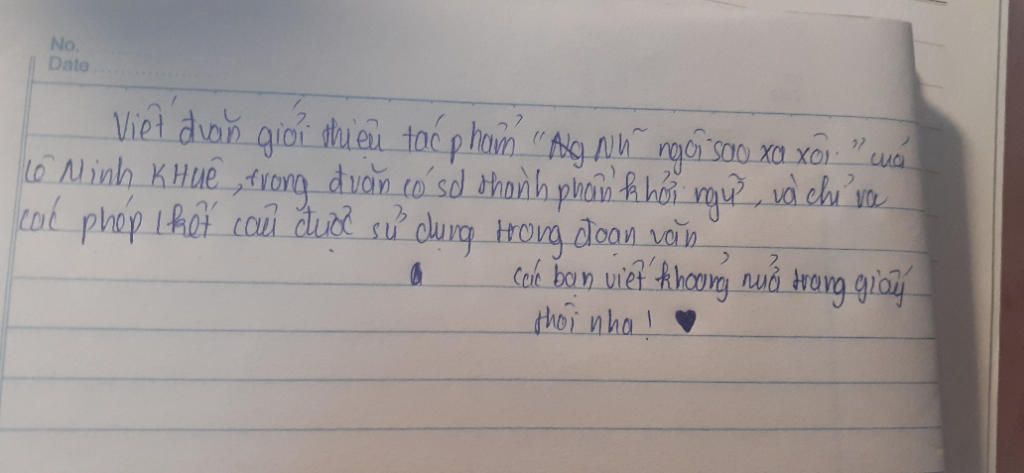 No.
Date
Viết đvăn giới thiệu tác phẩm "Ng Nh~ ngôi sao xa xôi." của
Lê Minh KHuê, trong đvăn có sd thành phần khởi ngữ, và chỉ ra
các phép l kết câu được sử dụng trong đoạn văn
các bạn viết khoảng nửa trang giấy
thôi nha! ♥